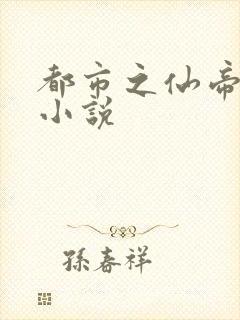 都市之仙帝
小説
孫春祥